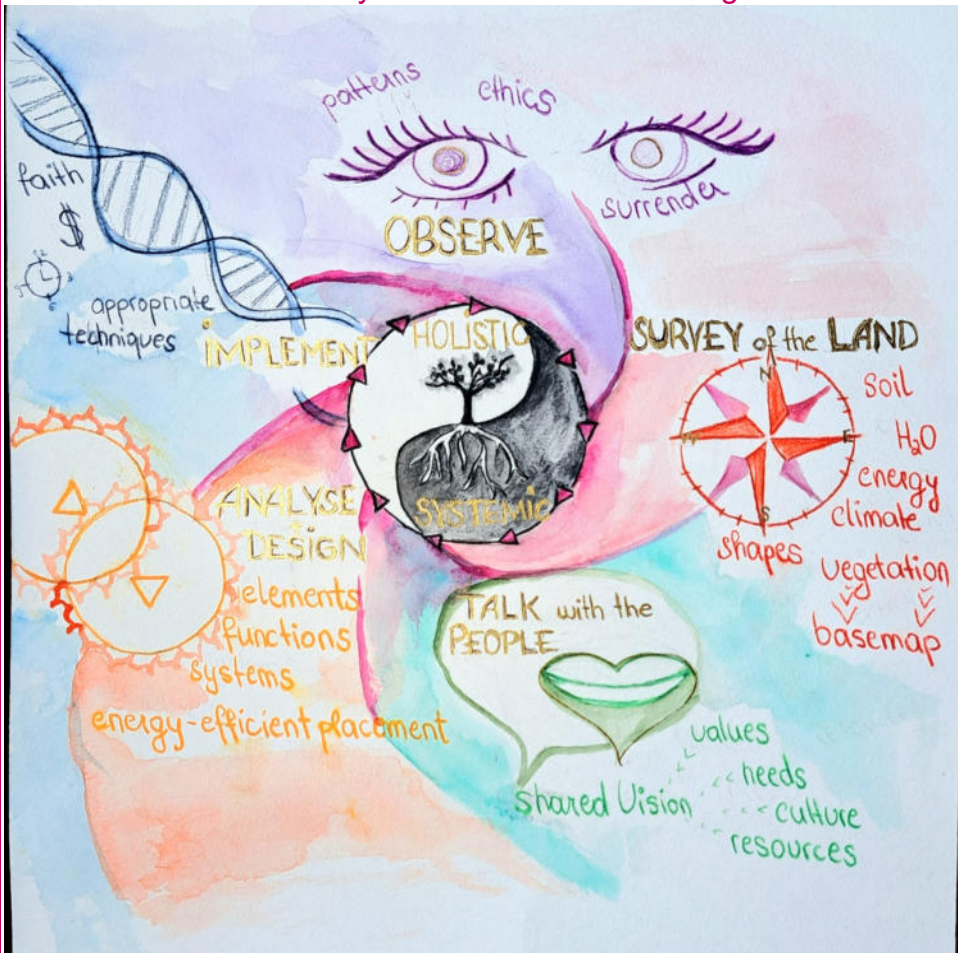 patterns
ethics
surrender
OBSERVE
faith
$
appropriate
techniques
IMPLEMENT
HOLISTIC
SYSTEMIC
SURVEY of the LAND
N
E
S
W
soil
H₂O
energy
climate
shapes
vegetation
basemap
ANALYSE
+
DESIGN
elements
functions
systems
energy-efficient placement
TALK with the
PEOPLE
values
needs
shared Vision
culture
resources